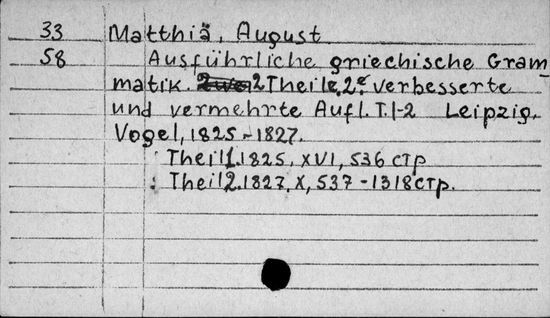 33 Matthiä, August
58 Ausführliche griechische Gram-
matik. 2 Theile, 2e verbesserte
und vermehrte Aufl. T.1-2 Leipzig,
Vogel, 1825-1827.
Theil 1. 1825, XVI, 536 стр
Theil 2. 1827, X, 537-1318 стр.